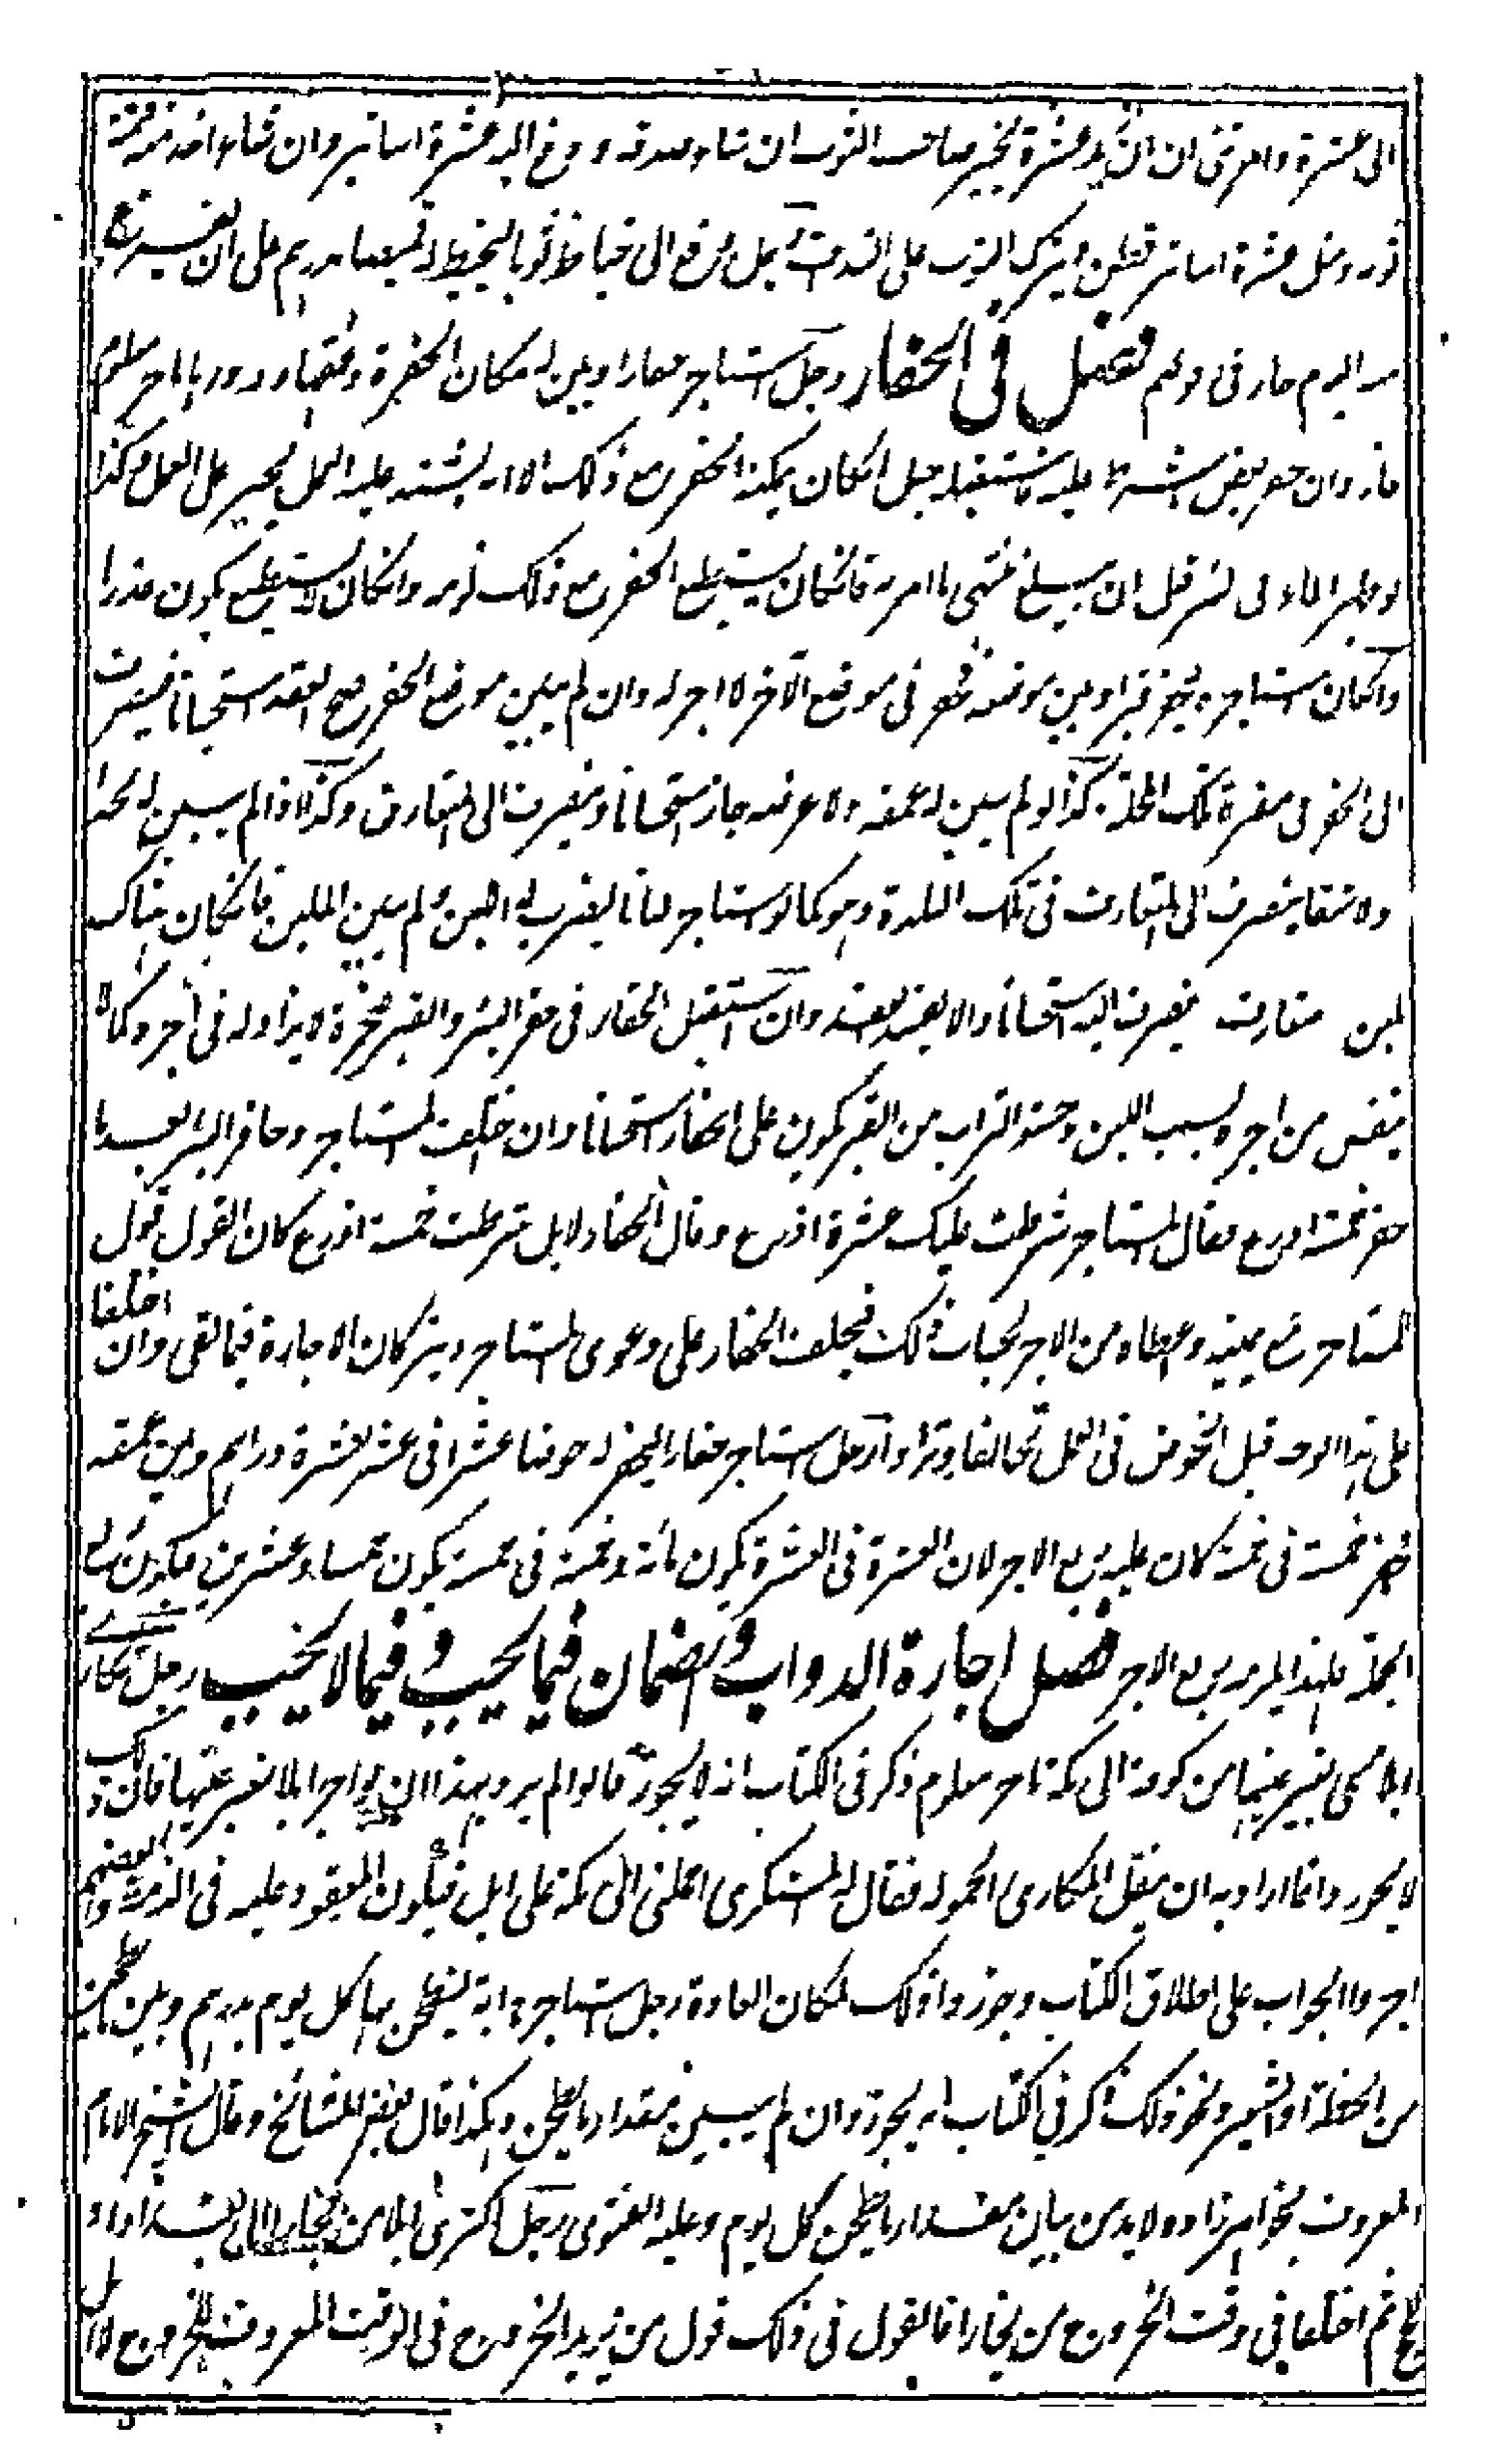 الى عشرة والعرفي ان يخير صاحب الثوب ان شاء صدقه و دفع اليه عشرة اساتير وان شاء اخذ منه قيمة
ثوبه ومثل عشرة اساتير قطن ويترك الثوب على النداف رجل دفع الى خياط ثوبا ليخيطه له قميصا بدرهم على ان يفرغ
من اليوم جاز في قولهم فصل في الحفار رجل استاجر حفارا وبين له مكان الحفرة وعمقها ودورها باجر معلوم
جاز وان حفر بعض البئر فاستقبله جبل ان كان يمكنه الحفر مع ذلك الا انه يشتد عليه العمل يجبر على العمل وكذا
لو ظهر الماء في البئر قبل ان يبلغ منتهى ما امر به فانكان يستطيع الحفر مع ذلك لزمه وانكان لا يستطيع يكون عذرا
وانكان استاجره ليحفر قبرا وبين موضعه فحفر في موضع الآخر لا اجر له وان لم يبين موضع الحفر صح العقد استحسانا فينصرف
الى الحفر في مقبرة تلك المحلة وكذا لو لم يبين له عمقه ولا عرضه جاز استحسانا وينصرف الى المتعارف وكذلك اذا لم يبين له لحدا
ولا شقا ينصرف الى المتعارف في تلك البلدة وهو كما لو استاجر لبانا ليضرب له اللبن ولم يبين الملبن فانكان هناك
لبن متعارف ينصرف اليه استحسانا والا يفسد العقد وان استقبل الحفار في حفر البئر والقبر صخرة لا يزاد له في اجره كما لا
ينقص من اجره بسبب اللين وحثو التراب من القبر يكون على الحفار استحسانا وان اختلف المستاجر وحافر البئر بعد ما
حفر خمسة اذرع فقال المستاجر شرطت عليك عشرة اذرع وقال الحفار لا بل شرطت خمسة اذرع كان القول قول
المستاجر مع يمينه واعطاه من الاجر بحساب ذلك فيحلف الحفار على دعوى المستاجر ويتركان الاجارة فيما بقي وان اختلفا
على هذا الوجه قبل الخوض في العمل تحالفا وترادا رجل استاجر حفارا ليحفر له حوضا عشرا في عشر بعشرة دراهم وبين عمقه
فحفر خمسة في خمسة كان عليه ربع الاجر لان العشرة في العشرة يكون مائة وخمسة في خمسة يكون خمسا وعشرين فيكون ربع
الجملة فلهذا يلزمه ربع الاجر فصل اجارة الدواب والضمان فيما يجب وفيما لا يجب رجل تكارى
ابلا مسمى بغير عينها من كوفة الى مكة باجر معلوم ذكر في الكتاب انه يجوز قالوا لم يرد بهذا ان يؤاجر ابلا بغير عينها فان ذلك
لا يجوز وانما اراد به ان يتقبل المكاري الحمولة فقال له المستكري احملني الى مكة على ابل فيكون المعقود عليه في الذمة وبعضهم
اجروا الجواب على اطلاق الكتاب وجوزوا ذلك لمكان العادة رجل استاجر دابة ليطحن بها كل يوم بدرهم وبين ما يطحن
من الحنطة او الشعير ونحو ذلك ذكر في الكتاب انه يجوز وان لم يبين مقدار ما يطحن وهكذا قال بعض المشائخ وقال الشيخ الامام
المعروف بخواهرزاده لا بد من بيان مقدار ما يطحن كل يوم وعليه الفتوى رجل اكترى ابلا من بخارا الى بغداد او
ثم اختلفا في وقت الخروج من بخارا فالقول في ذلك قول من يريد الخروج في الوقت المعروف للخروج